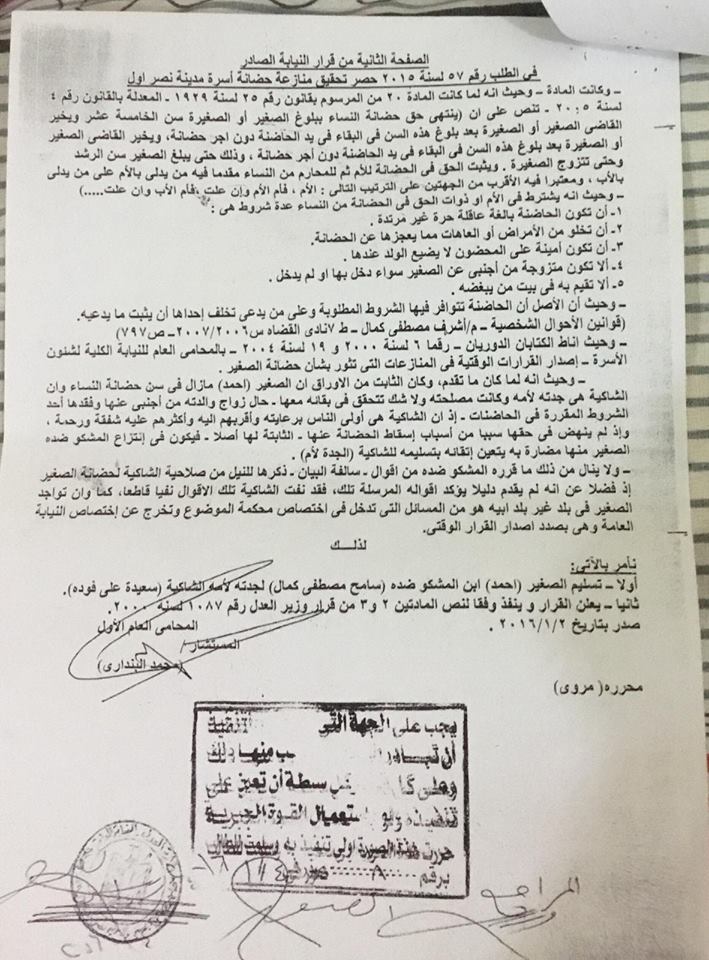 الصفحة الثانية من قرار النيابة الصادر
فى الطلب رقم ٥٧ لسنة ٢٠١٥ حصر تحقيق منازعة حضانة أسرة مدينة نصر اول
ـ وكانت المادة ـ وحيث انه لما كانت المادة ٢٠ من المرسوم بقانون رقم ٢٥ لسنة ١٩٢٩ ـ المعدلة بالقانون رقم ٤
لسنة ٢٠٠٥ ـ تنص على ان (ينتهى حق حضانة النساء ببلوغ الصغير أو الصغيرة سن الخامسة عشر ويخير
القاضى الصغير أو الصغيرة بعد بلوغ هذه السن فى البقاء فى يد الحاضنة دون اجر حضانة، ويخير القاضى الصغير
أو الصغيرة بعد بلوغ هذه السن فى البقاء فى يد الحاضنة دون أجر حضانة ، وذلك حتى يبلغ الصغير سن الرشد
وحتى تتزوج الصغيرة . ويثبت الحق فى الحضانة للأم ثم للمحارم من النساء مقدما فيه من يدلى بالأم على من يدلى
بالأب ، ومعتبرا فيه الأقرب من الجهتين على الترتيب التالى : الأم ، فأم الأم وإن علت ،فأم الأب وان علت.....)
ـ وحيث انه يشترط فى الأم او ذوات الحق فى الحضانة من النساء عدة شروط هى :
١ـ أن تكون الحاضنة بالغة عاقلة حرة غير مرتدة .
٢ـ أن تخلو من الأمراض أو العاهات مما يعجزها عن الحضانة.
٣ـ أن تكون أمينة على المحضون لا يضيع الولد عندها .
٤ـ ألا تكون متزوجة من أجنبى عن الصغير سواء دخل بها او لم يدخل .
٥ـ ألا تقيم به فى بيت من يبغضه .
ـ وحيث أن الأصل أن الحاضنة تتوافر فيها الشروط المطلوبة وعلى من يدعى تخلف إحداها أن يثبت ما يدعيه.
(قوانين الأحوال الشخصية ـ م/أشرف مصطفى كمال ـ ط ٧نادى القضاه س٢٠٠٧/٢٠٠٦ـ ص٧٩٧)
ـ وحيث اناط الكتابان الدوريان ـ رقما ٦ لسنة ٢٠٠٠ و ١٩ لسنة ٢٠٠٤ ـ بالمحامى العام للنيابة الكلية لشئون
الأسرة ـ إصدار القرارات الوقتية فى المنازعات التى تثور بشأن حضانة الصغير .
ـ وحيث انه لما كان ما تقدم، وكان الثابت من الاوراق ان الصغير (احمد) مازال فى سن حضانة النساء وان
الشاكية هى جدته لأمه وكانت مصلحته ولا شك تتحقق فى بقائه معها ـ حال زواج والدته من أجنبى عنها وفقدها أحد
الشروط المقررة فى الحاضنات ـ إذ ان الشاكية هى أولى الناس برعايته وأقربهم اليه وأكثرهم عليه شفقة ورحمة ،
وإذ لم ينهض فى حقها سببا من أسباب إسقاط الحضانة عنها ـ الثابتة لها أصلا ـ فيكون فى إنتزاع المشكو ضده
الصغير منها مضارة به يتعين إتقائه بتسليمه للشاكية (الجدة لأم) .
ـ ولا ينال من ذلك ما قرره المشكو ضده من اقوال ـ سالفة البيان ـ ذكرها للنيل من صلاحية الشاكية لحضانة الصغير
إذ فضلا عن انه لم يقدم دليلا يؤكد اقواله المرسلة تلك، فقد نفت الشاكية تلك الاقوال نفيا قاطعا، كما وان تواجد
الصغير فى بلد غير بلد ابيه هو من المسائل التى تدخل فى اختصاص محكمة الموضوع وتخرج عن إختصاص النيابة
العامة وهى بصدد اصدار القرار الوقتى.
لذلــك
نأمر بالآتى:
أولا ـ تسليم الصغير (احمد) ابن المشكو ضده (سامح مصطفى كمال) لجدته لأمه الشاكية (سعيدة على فوده).
ثانيا ـ يعلن القرار و ينفذ وفقا لنص المادتين ٢ و ٣ من قرار وزير العدل رقم ١٠٨٧ لسنة ٢٠٠٠.
صدر بتاريخ ٢٠١٦/١/٢ .
المحامى العام الأول
المستشار/
(محمد البندارى)
محرره( مروى)
يجب على الجهة التى تنفيذ
أن تبادر منها ذلك
وعلى سلطة أن تعين على
تنفيذه ولو إستعمال القوة الجبرية
حررت هذة الصورة اولى تنفيذ به وسلمت للطالب
برقم